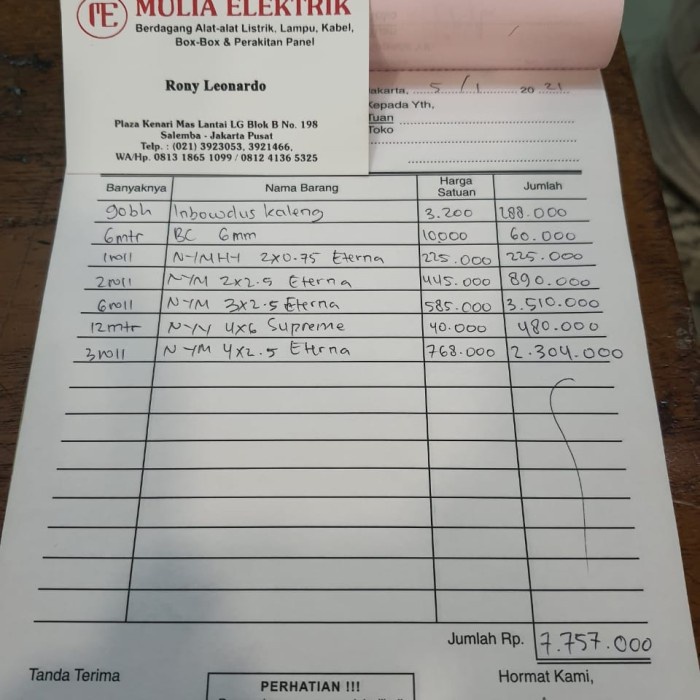 MULIA ELEKTRIK
Berdagang Alat-alat Listrik, Lampu, Kabel,
Box-Box & Perakitan Panel
Rony Leonardo
Plaza Kenari Mas Lantai LG Blok B No. 198
Salemba - Jakarta Pusat
Telp. : (021) 3923053, 3921466,
WA/Hp. 0813 1865 1099 / 0812 4136 5325
akarta, 5/1 20 21
Kepada Yth,
Tuan
Toko
Banyaknya Nama Barang Harga Satuan Jumlah
90bh Inbowdus kaleng 3.200 288.000
6mtr BC 6mm 10000 60.000
1roll NYMHY 2x0.75 Eterna 225.000 225.000
2roll NYM 2x2.5 Eterna 445.000 890.000
6roll NYM 3x2.5 Eterna 585.000 3.510.000
12mtr NYY 4x6 Supreme 40.000 480.000
3roll NYM 4x2.5 Eterna 768.000 2.304.000
Jumlah Rp. 7.757.000
Tanda Terima Hormat Kami,
PERHATIAN !!!